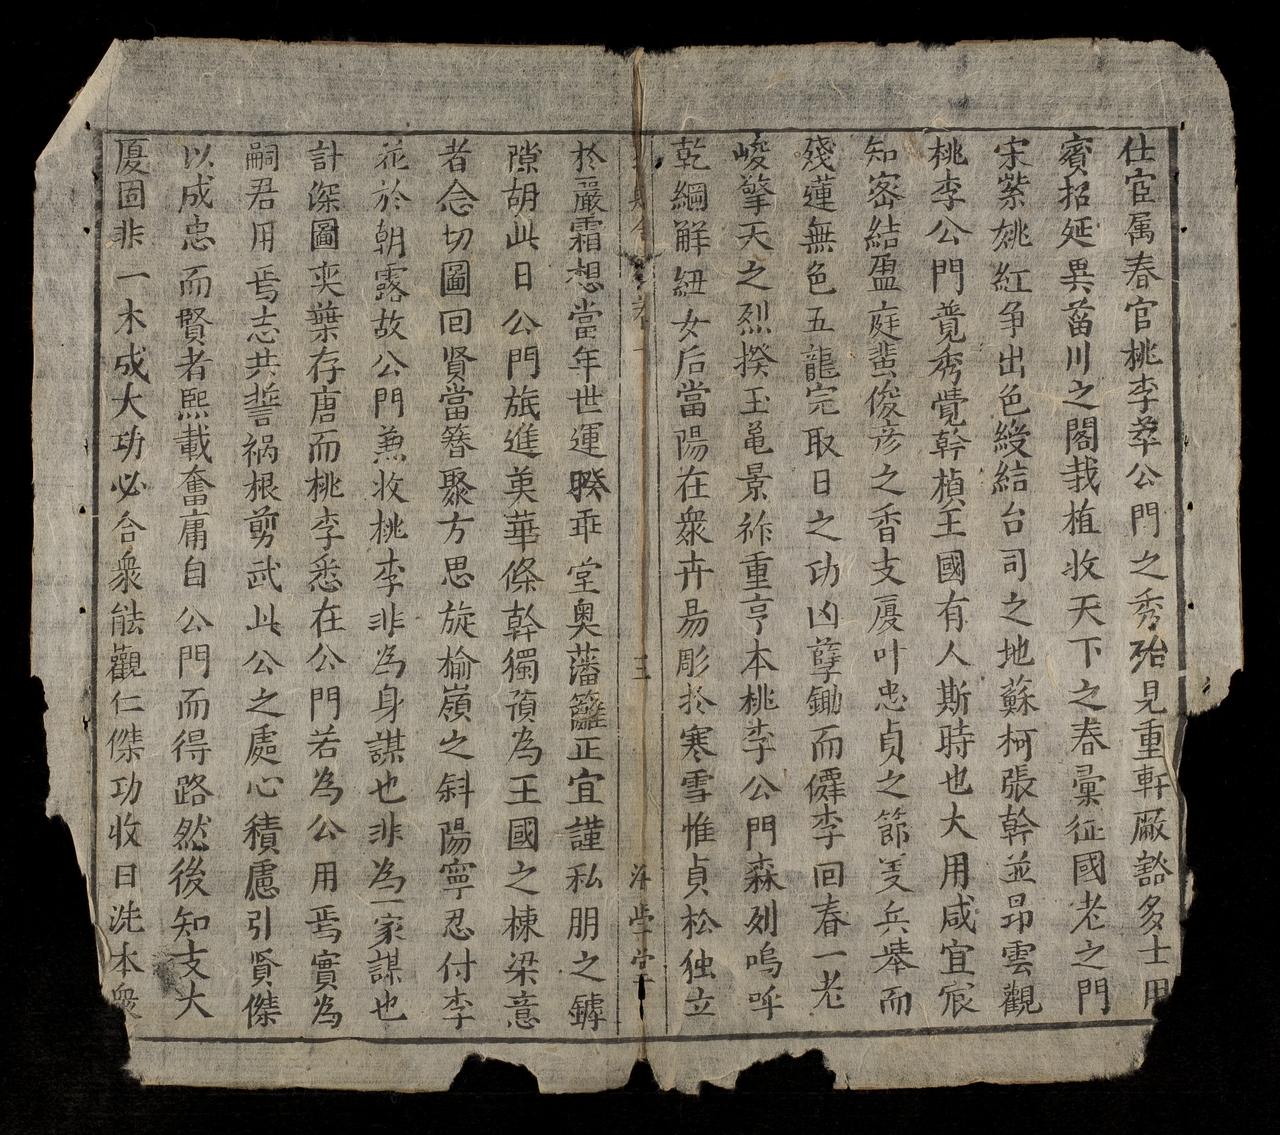 仕宦属春官桃李萃公門之秀殆見重軒厰豁多士用
賓招延異菑川之閣栽植收天下之春彙征國老之門
宋紫姚紅争出色綬結台司之地蘇柯張幹並昂雲觀
桃李公門蕘秀覺幹楨王國有人斯時也大用咸宜宸
知宻結盈庭蜚俊彦之香支厦叶忠貞之節羑兵舉而
殘蓮無色五龍完取日之功凶孽鋤而僻李回春一老
峻擎天之烈揆玉黽景祚重亨本桃李公門森列嗚呼
乾綱解紐女后當陽在衆卉易彫扵寒雪惟貞松独立
三
堂
扵嚴霜想當年世運暌乖堂奥藩籬正宜謹私朋之罅
隙胡此日公門旅進英華條幹獨預為王國之棟梁意
者念切圖回賢當簪聚方思旋榆嶺之斜陽寧忍付李
花於朝露故公門兼收桃李非為身謀也非為一家謀也
計深圖奕葉存唐而桃李悉在公門若為公用焉實為
嗣君用焉志共誓祸根剪武此公之處心積慮引賢傑
以成忠而賢者熙載奮庸自公門而得路然後知支大
厦固非一木成大功必合衆能觀仁傑功收日洗本衆